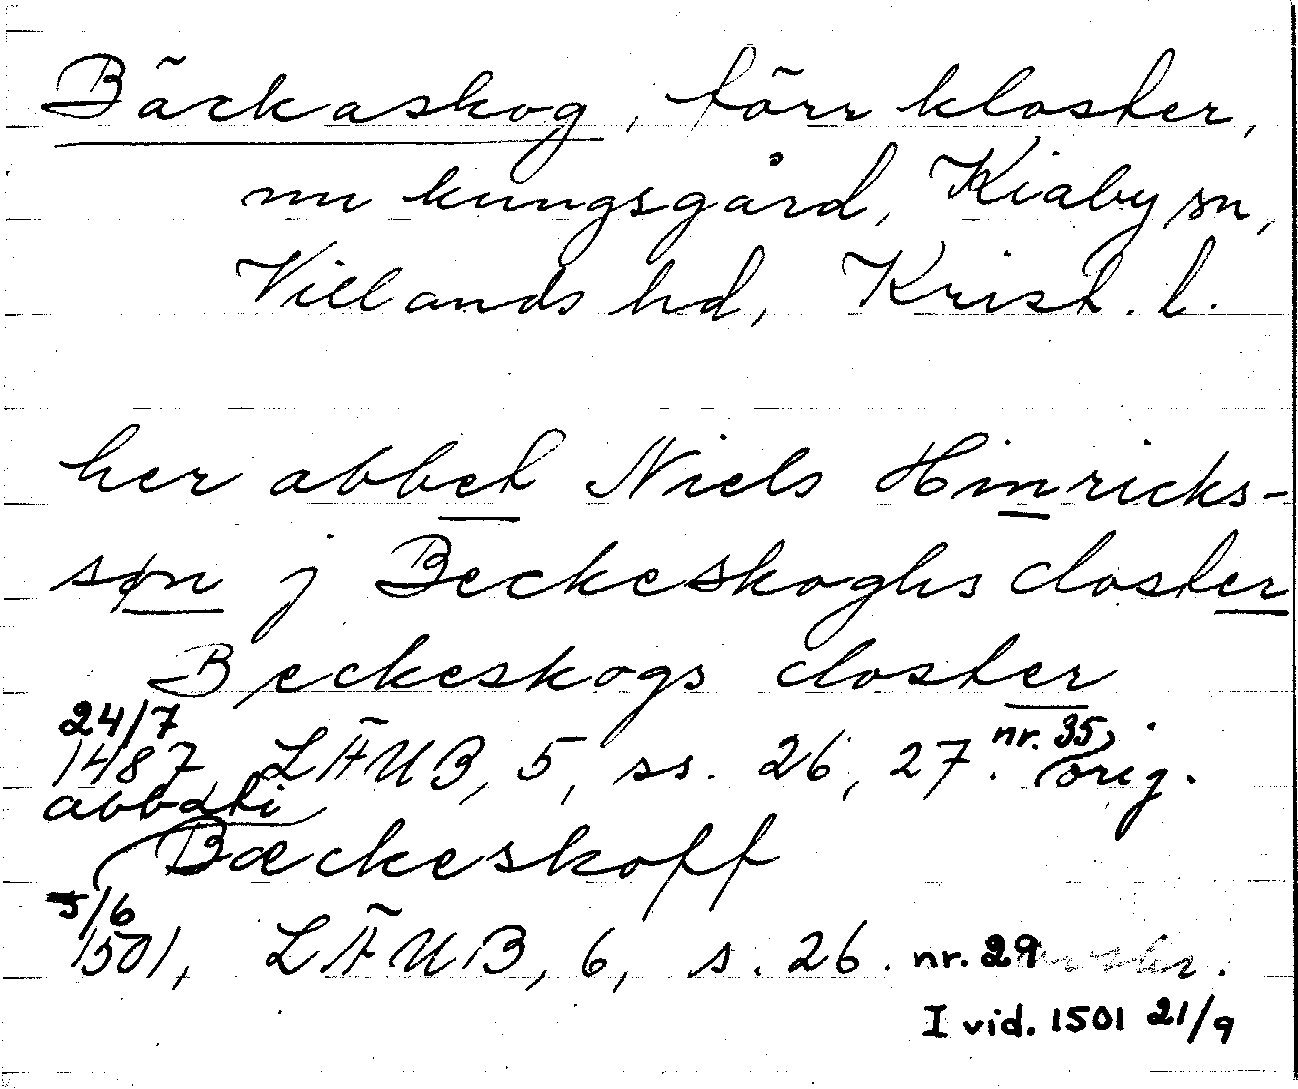 Bäckaskog, förr kloster,
nu kungsgård, Kiaby sn,
Villands hd, Krist. l.
her abbet Niels Hinricks-
søn j Beckeskoghs closter
Beckeskogs closter
24/7
1487, LÄUB, 5, ss. 26, 27. nr. 35, orig.
abbati
Bæckeskoff
5/6
1501, LÄUB, 6, s. 26. nr. 29
I vid. 1501 21/9